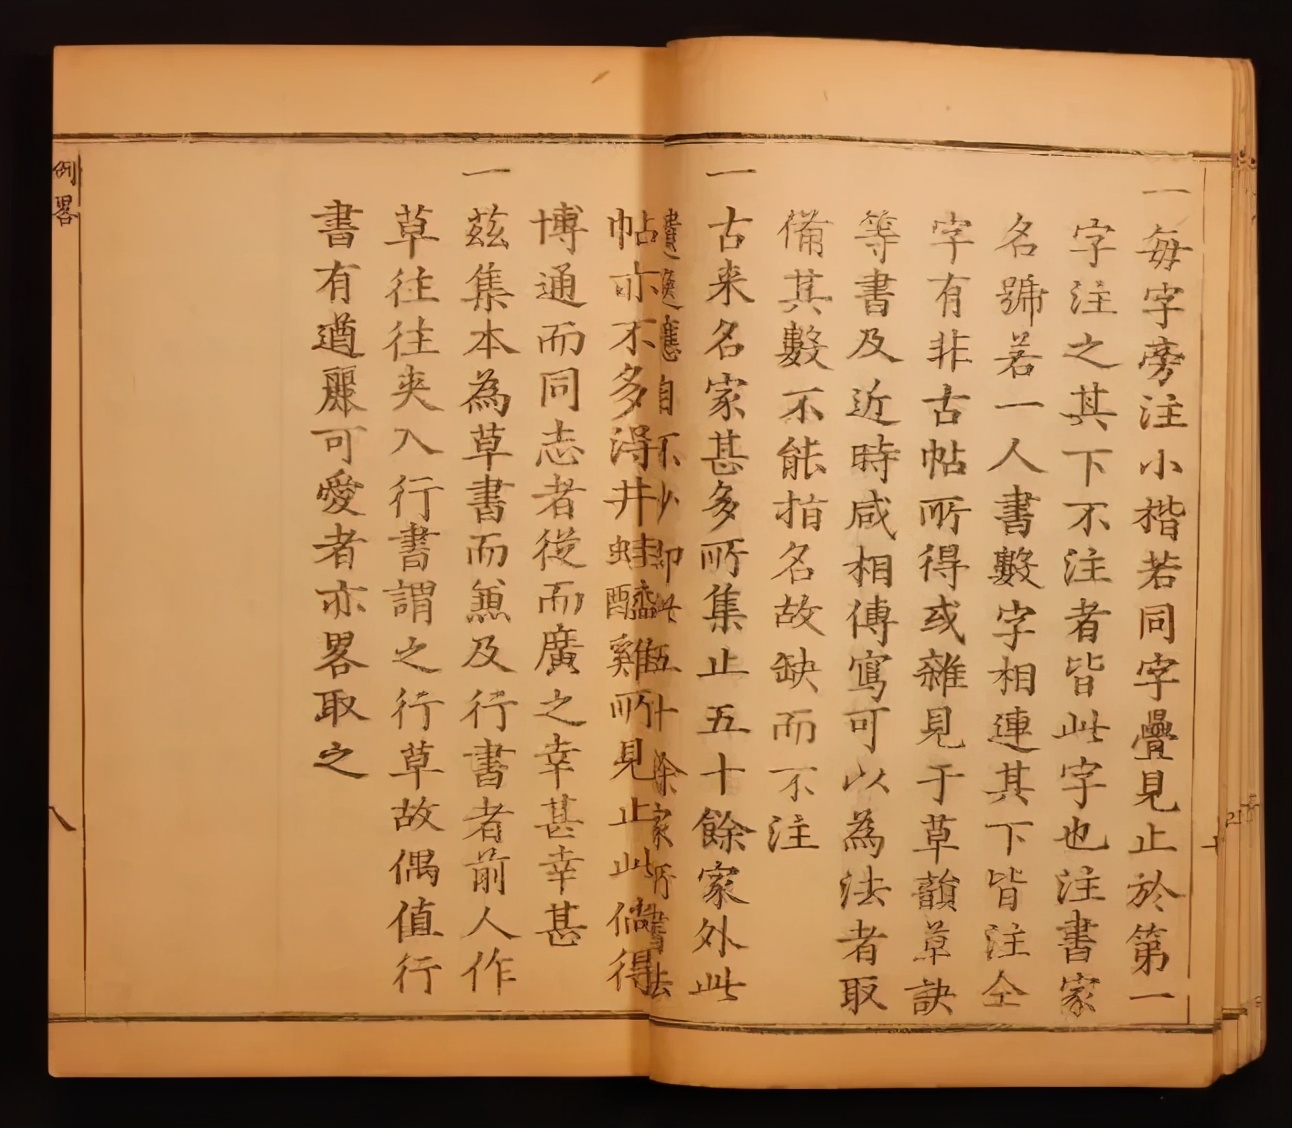 一每字旁注小楷若同字疊見止於第一
字注之其下不注者皆此字也注書家
名號若一人書數字相連其下皆注仝
字有非古帖所得或雜見于草韻草訣
等書及近時咸相傳寫可以為法者取
備其數不能指名故缺而不注
一古来名家甚多所集止五十餘家外此
遺應自不少即此五十餘家所書法
帖亦不多得井蛙醯雞所見止此倘得
博通而同志者從而廣之幸甚幸甚
一茲集本為草書而兼及行書者前人作
草往往夾入行書謂之行草故偶值行
書有遒麗可愛者亦畧取之
例畧
八